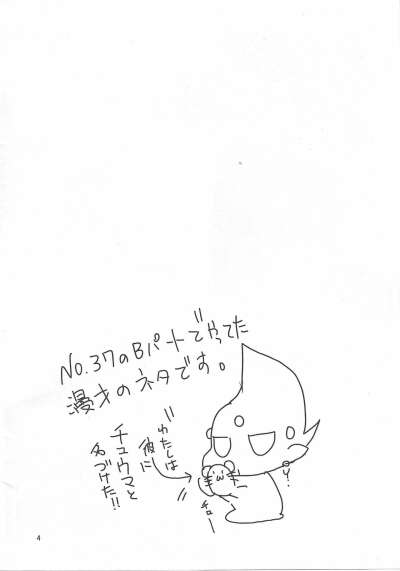 No.37のBパートでやってた
漫才のネタです。
わたしは
彼に
チュウマと
名づけた!!
チュー
4